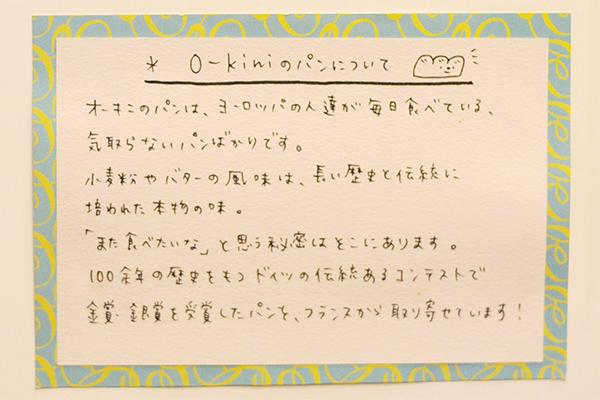 * O-kiniのパンについて
オーキニのパンは、ヨーロッパの人達が毎日食べている、
気取らないパンばかりです。
小麦粉やバターの風味は、長い歴史と伝統に
培われた本物の味。
「また食べたいな」と思う秘密はそこにあります。
100余年の歴史をもつドイツの伝統あるコンテストで
金賞・銀賞を受賞したパンを、フランスから取り寄せています！